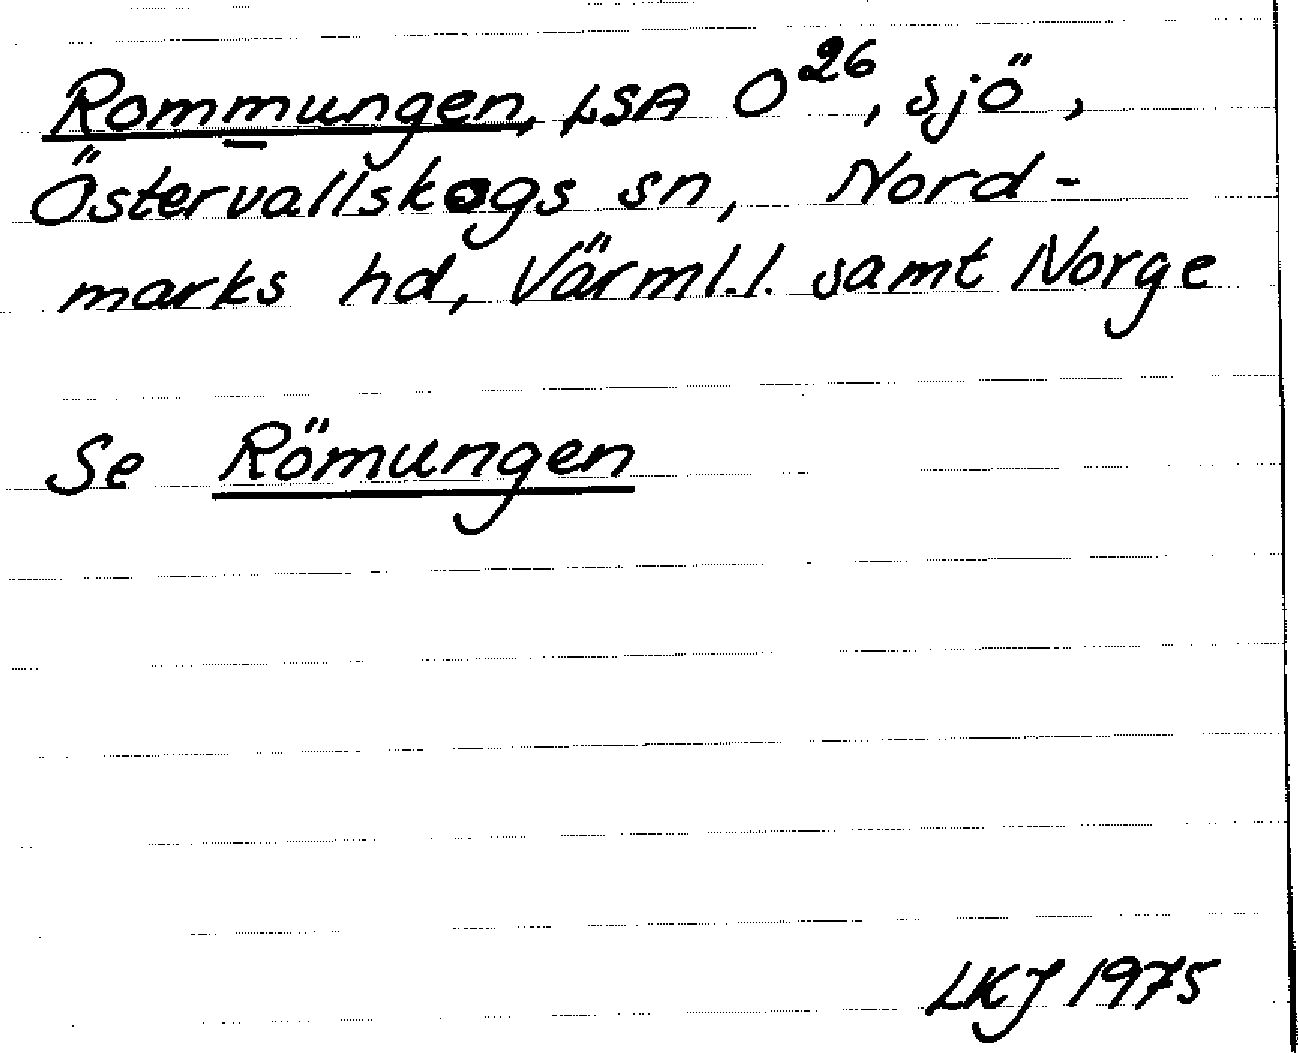 Rommungen, LSA O²⁶, sjö,
Östervallskogs sn, Nord-
marks hd, Värml.l. samt Norge
Se Römungen
LKJ 1975